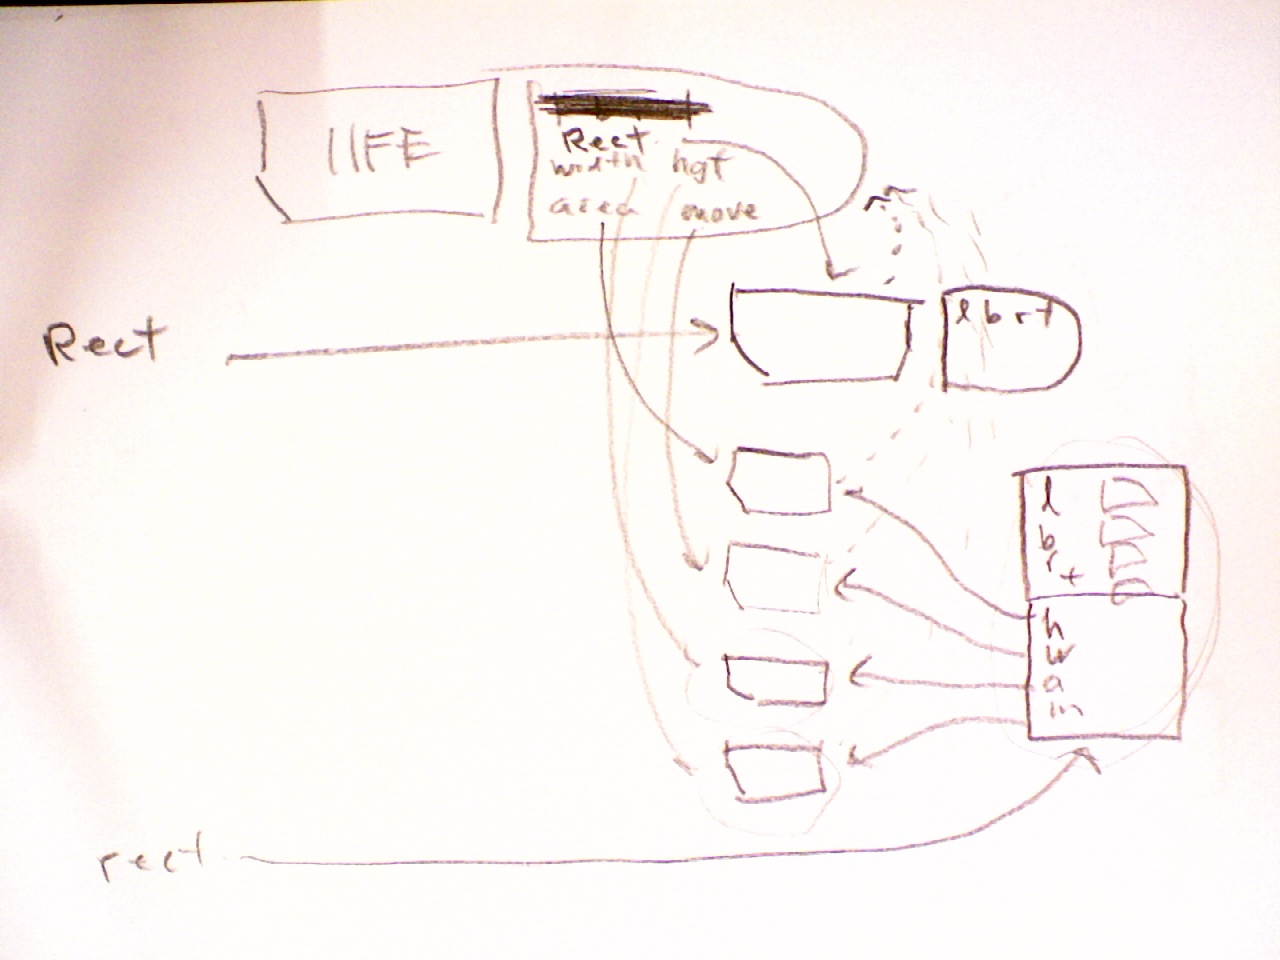 IIFE
Rect
width hgt
area move
l b r t
Rect
l
b
r
t
h
w
a
m
rect